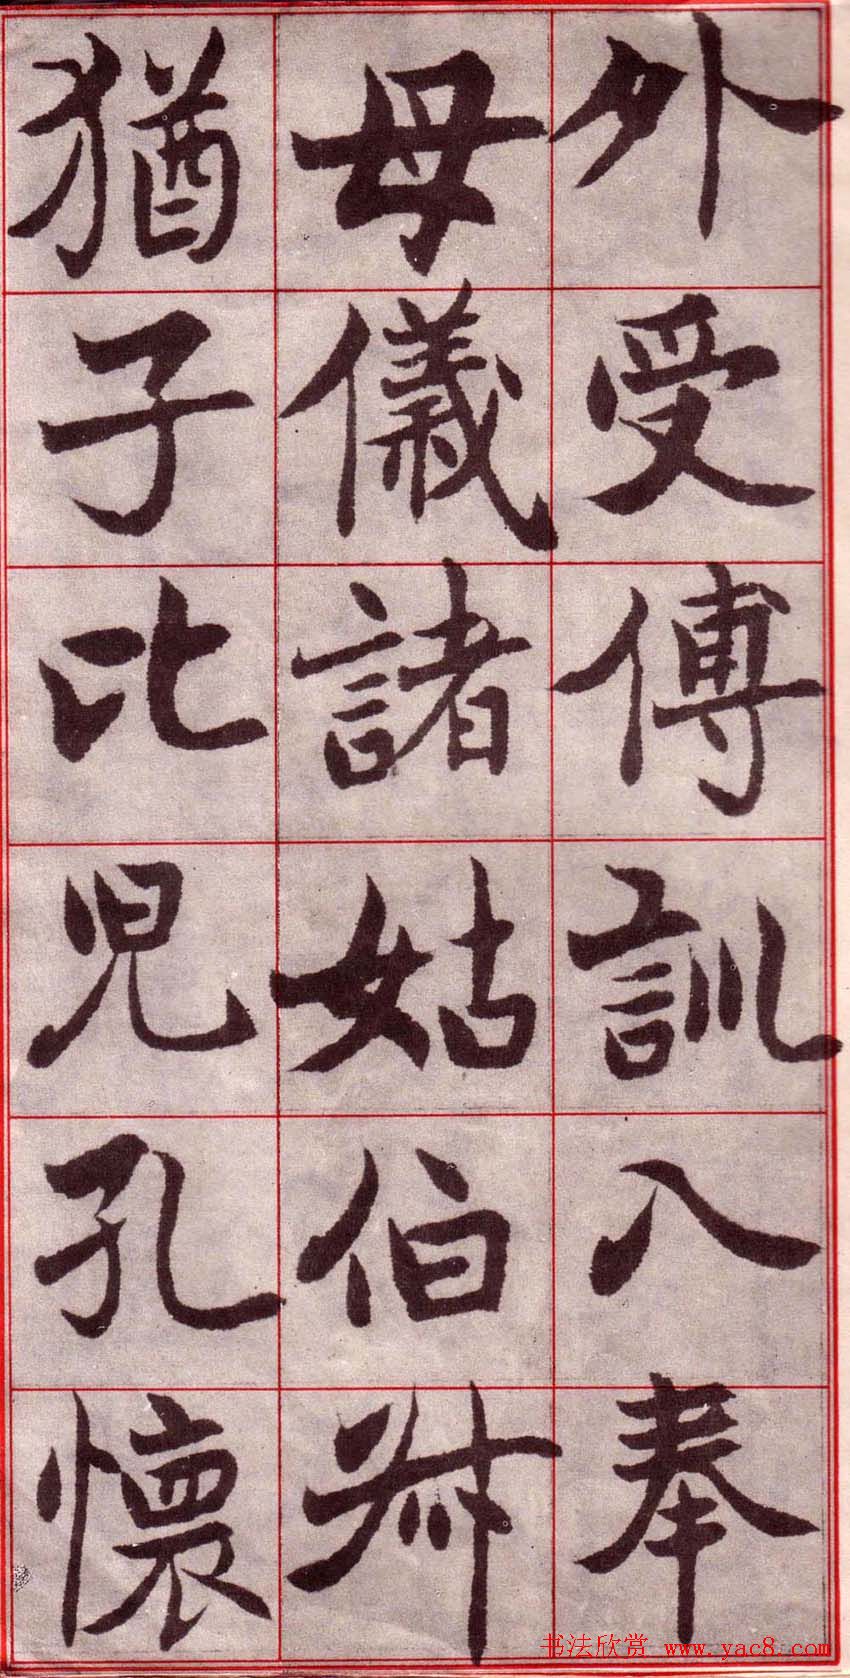 外受傅訓入奉
母儀諸姑伯叔
猶子比兒孔懷
书法欣赏 www.yac8.com